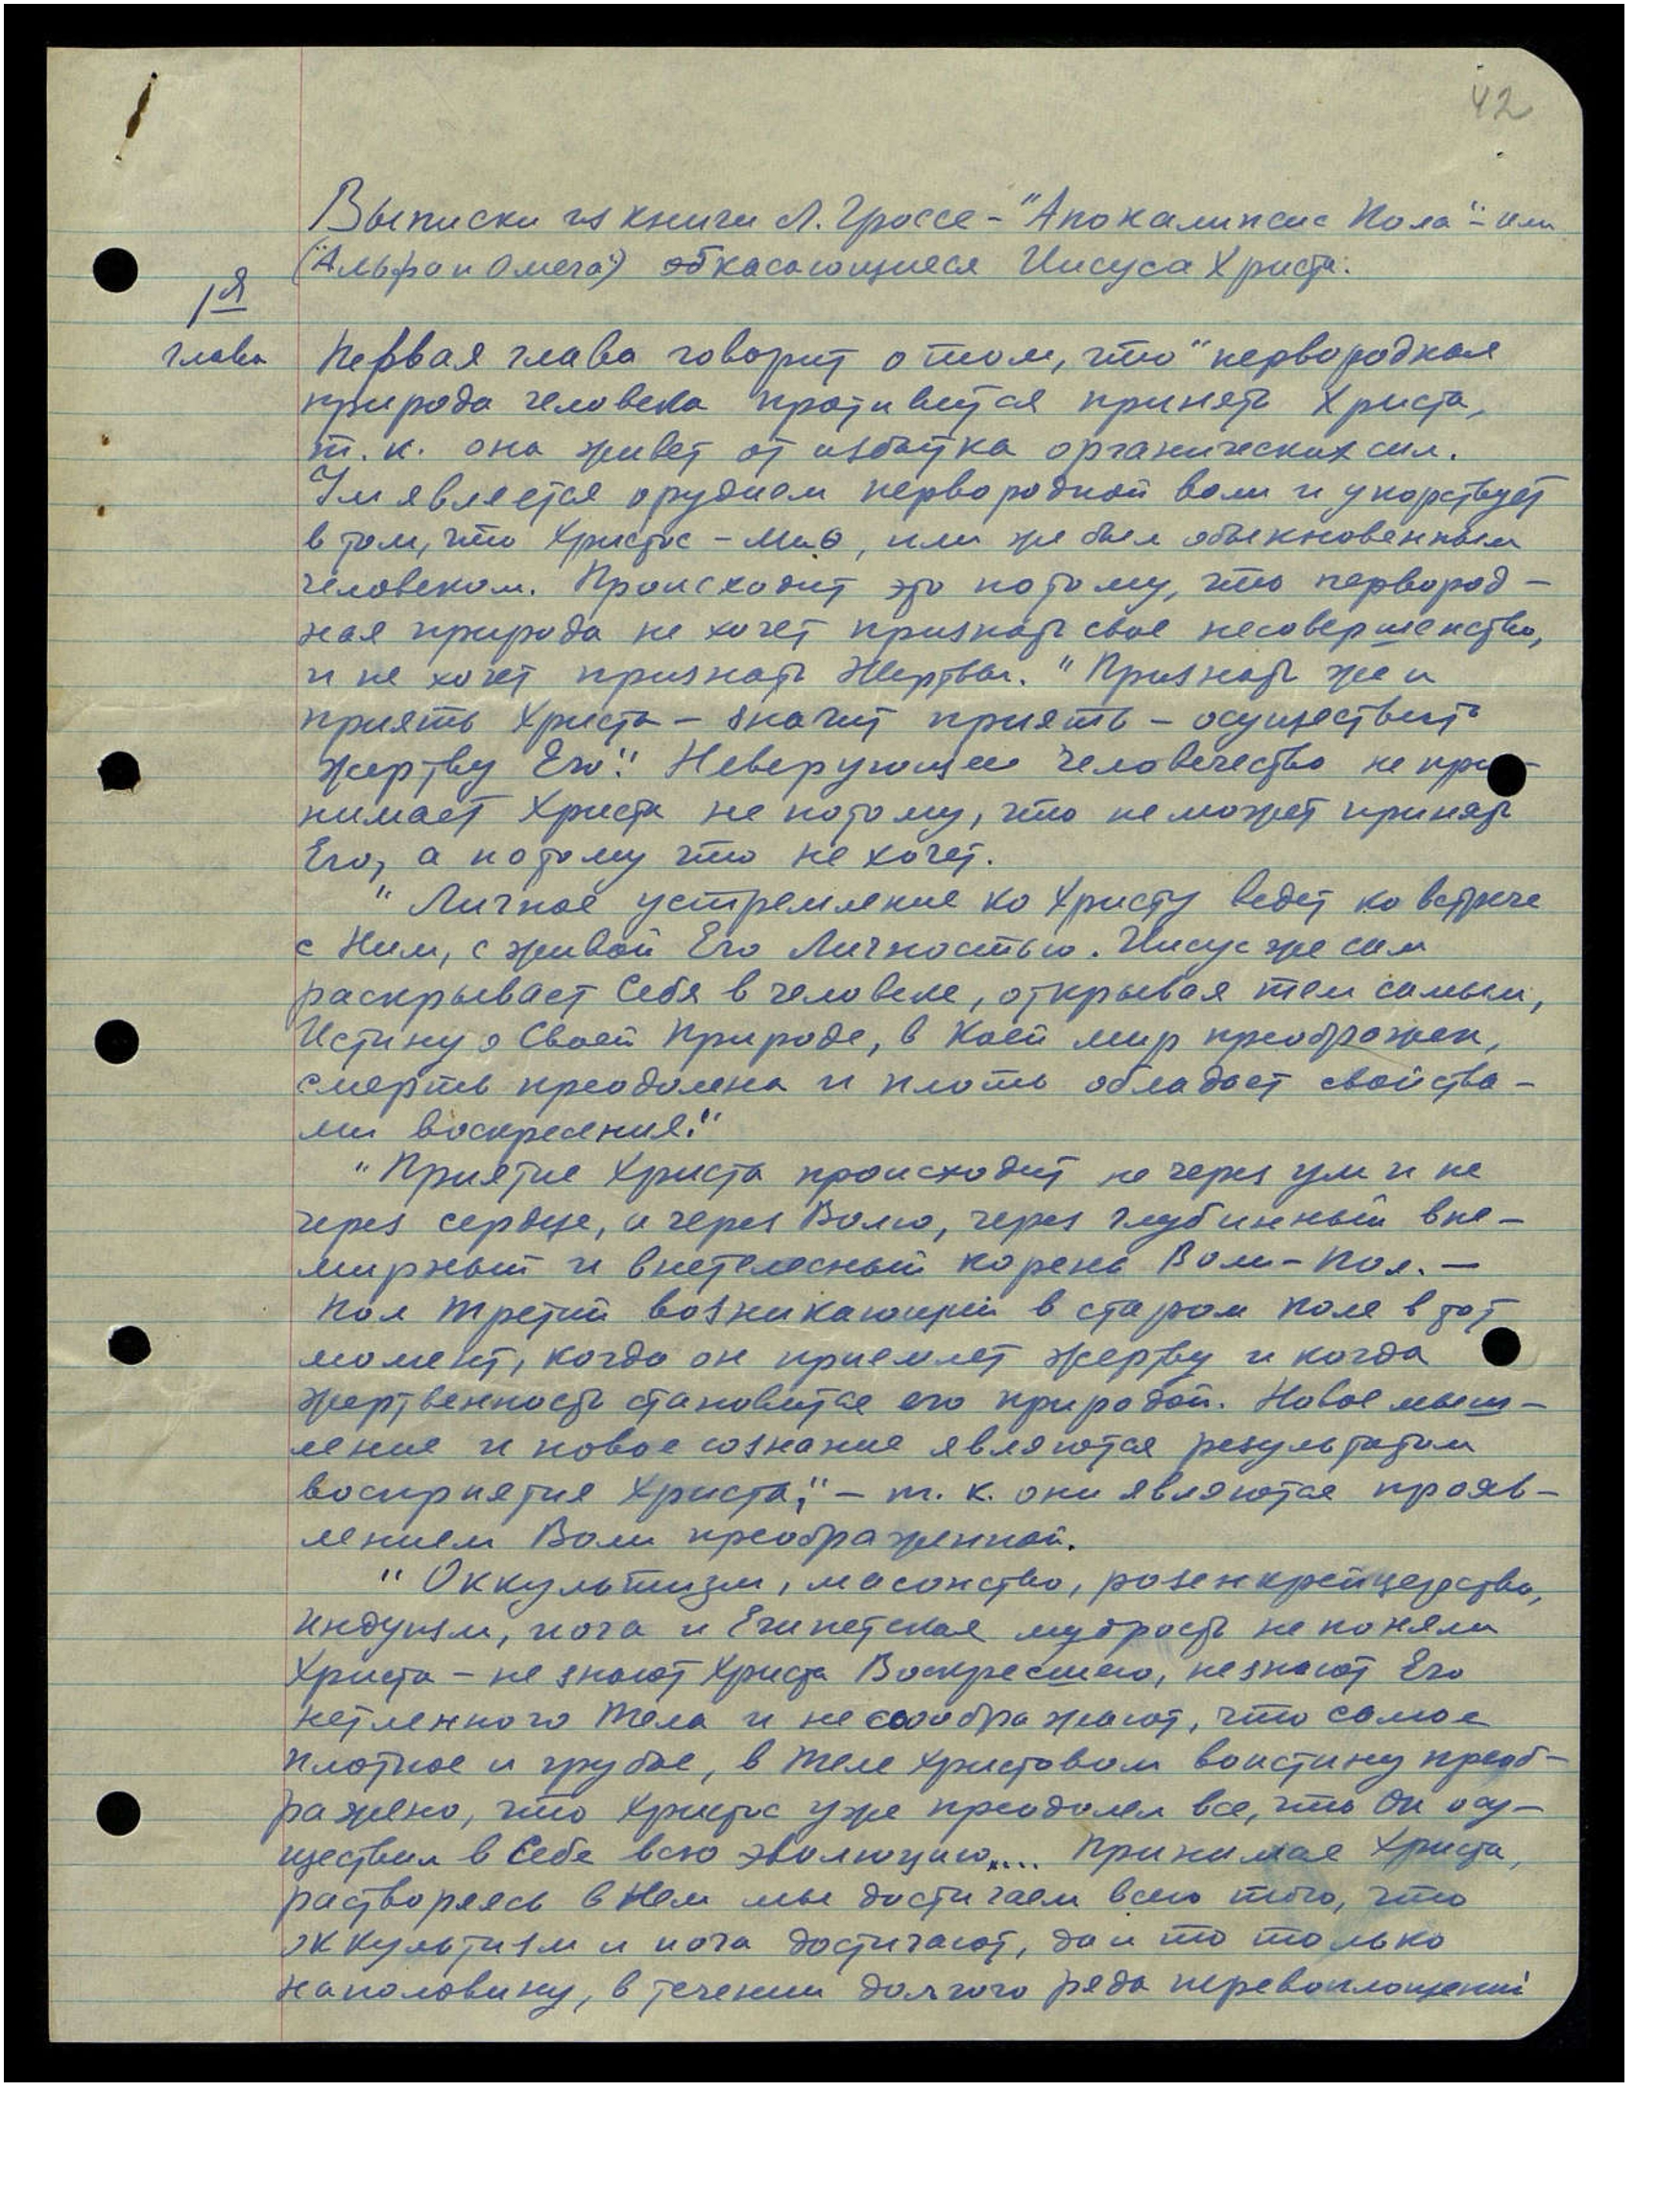 42
Выписки из книги Л. Гроссе - "Апокалипсис Пола" - или
("Альфа и Омега") касающиеся Иисуса Христа.
1я
глава
Первая глава говорит о том, что "первородная
природа человека противится принять Христа,
т.к. она живет от избытка органических сил.
Ум является орудием первородной воли и упорствует
в том, что Христос - миθ, или же был обыкновенным
человеком. Происходит это потому, что первород-
ная природа не хочет признать свое несовершенство,
и не хочет признать Жертвы. "Признать же и
приять Христа - значит приять - осуществить
жертву Его". Неверующее человечество не при-
нимает Христа не потому, что не может принять
Его, а потому что не хочет.
"Личное устремление ко Христу ведет ко встрече
с Ним, с живой Его Личностью. Иисус же сам
раскрывает Себя в человеке, открывая тем самым,
Истину о Своей Природе, в Коей мир преображен,
смерть преодолена и плоть обладает свойства-
ми воскресения."
"Приятие Христа происходит не через ум и не
через сердце, а через Волю, через глубинный вне-
мирный и внетелесный корень Воли - Пол. -
Пол Третий возникающий в старом поле в тот
момент, когда он приемлет жертву и когда
жертвенность становится его природой. Новое мыш-
ление и новое сознание являются результатом
восприятия Христа," - т.к. они являются прояв-
лением Воли преображенной.
"Оккультизм, масонство, розенкрейцерство,
индуизм, йога и Египетская мудрость не поняли
Христа - не знают Христа Воскресшего, не знают Его
нетленного Тела и не соображают, что самое
плотное и грубое, в Теле Христовом воистину преоб-
ражено, что Христос уже преодолел все, что Он осу-
ществил в Себе всю эволюцию.... Принимая Христа,
растворяясь в Нем мы достигаем всего того, что
оккультизм и йога достигают, да и то только
наполовину, в течении долгого ряда перевоплощений